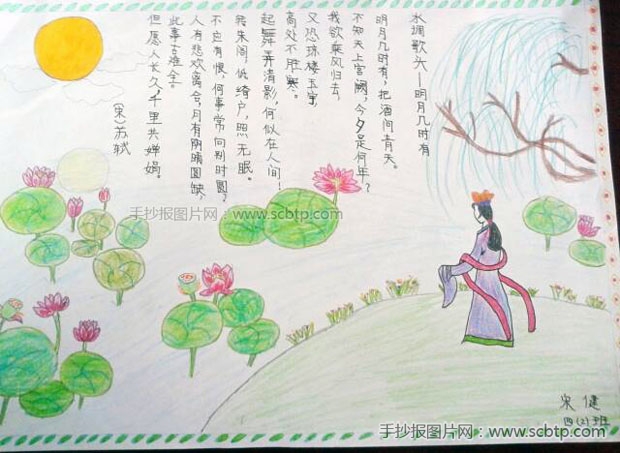 水调歌头——明月几时有
明月几时有，把酒问青天。
不知天上宫阙，今夕是何年？
我欲乘风归去，
又恐琼楼玉宇，
高处不胜寒。
起舞弄清影，何似在人间！
转朱阁，低绮户，照无眠。
不应有恨，何事常向别时圆？
人有悲欢离合，月有阴晴圆缺，
此事古难全。
但愿人长久，千里共婵娟。
(宋)苏轼
手抄报图片网：www.scbtp.com
宋健
四(2)班
手抄报图片网：www.scbtp.com